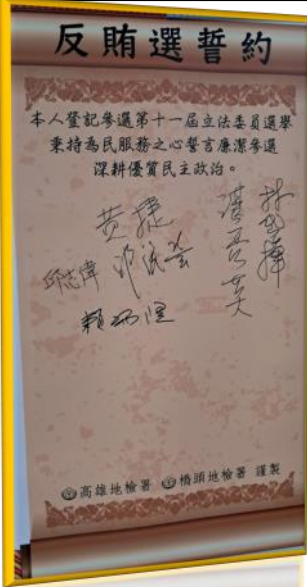 反賄選誓約
本人登記參選第十一屆立法委員選舉
秉持為民服務之心誓言廉潔參選
深耕優質民主政治。
黃捷
邱志偉
高雄地檢署 橋頭地檢署 謹製